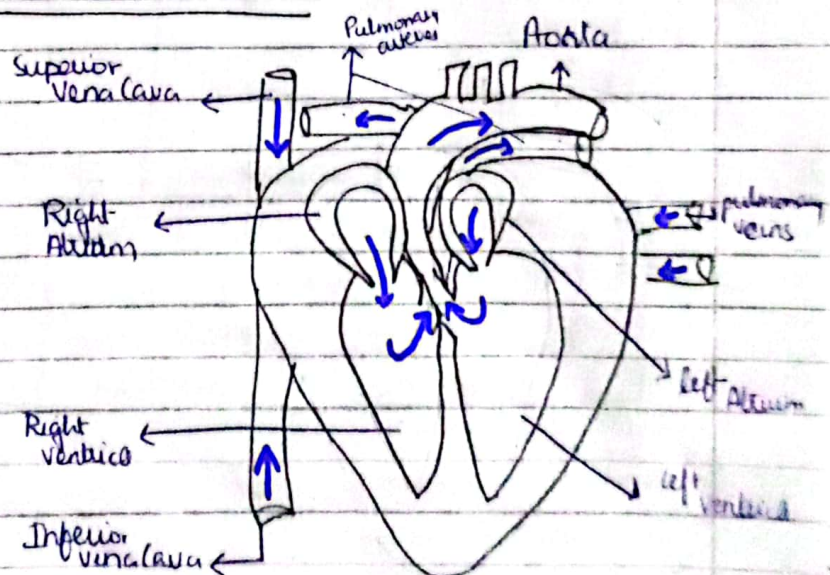 Pulmonary
arteries
Aorta
Superior
Vena Cava
Right
Atrium
pulmonary
veins
left Atrium
Right
ventrico
left
ventrico
Inferior
vena Cava